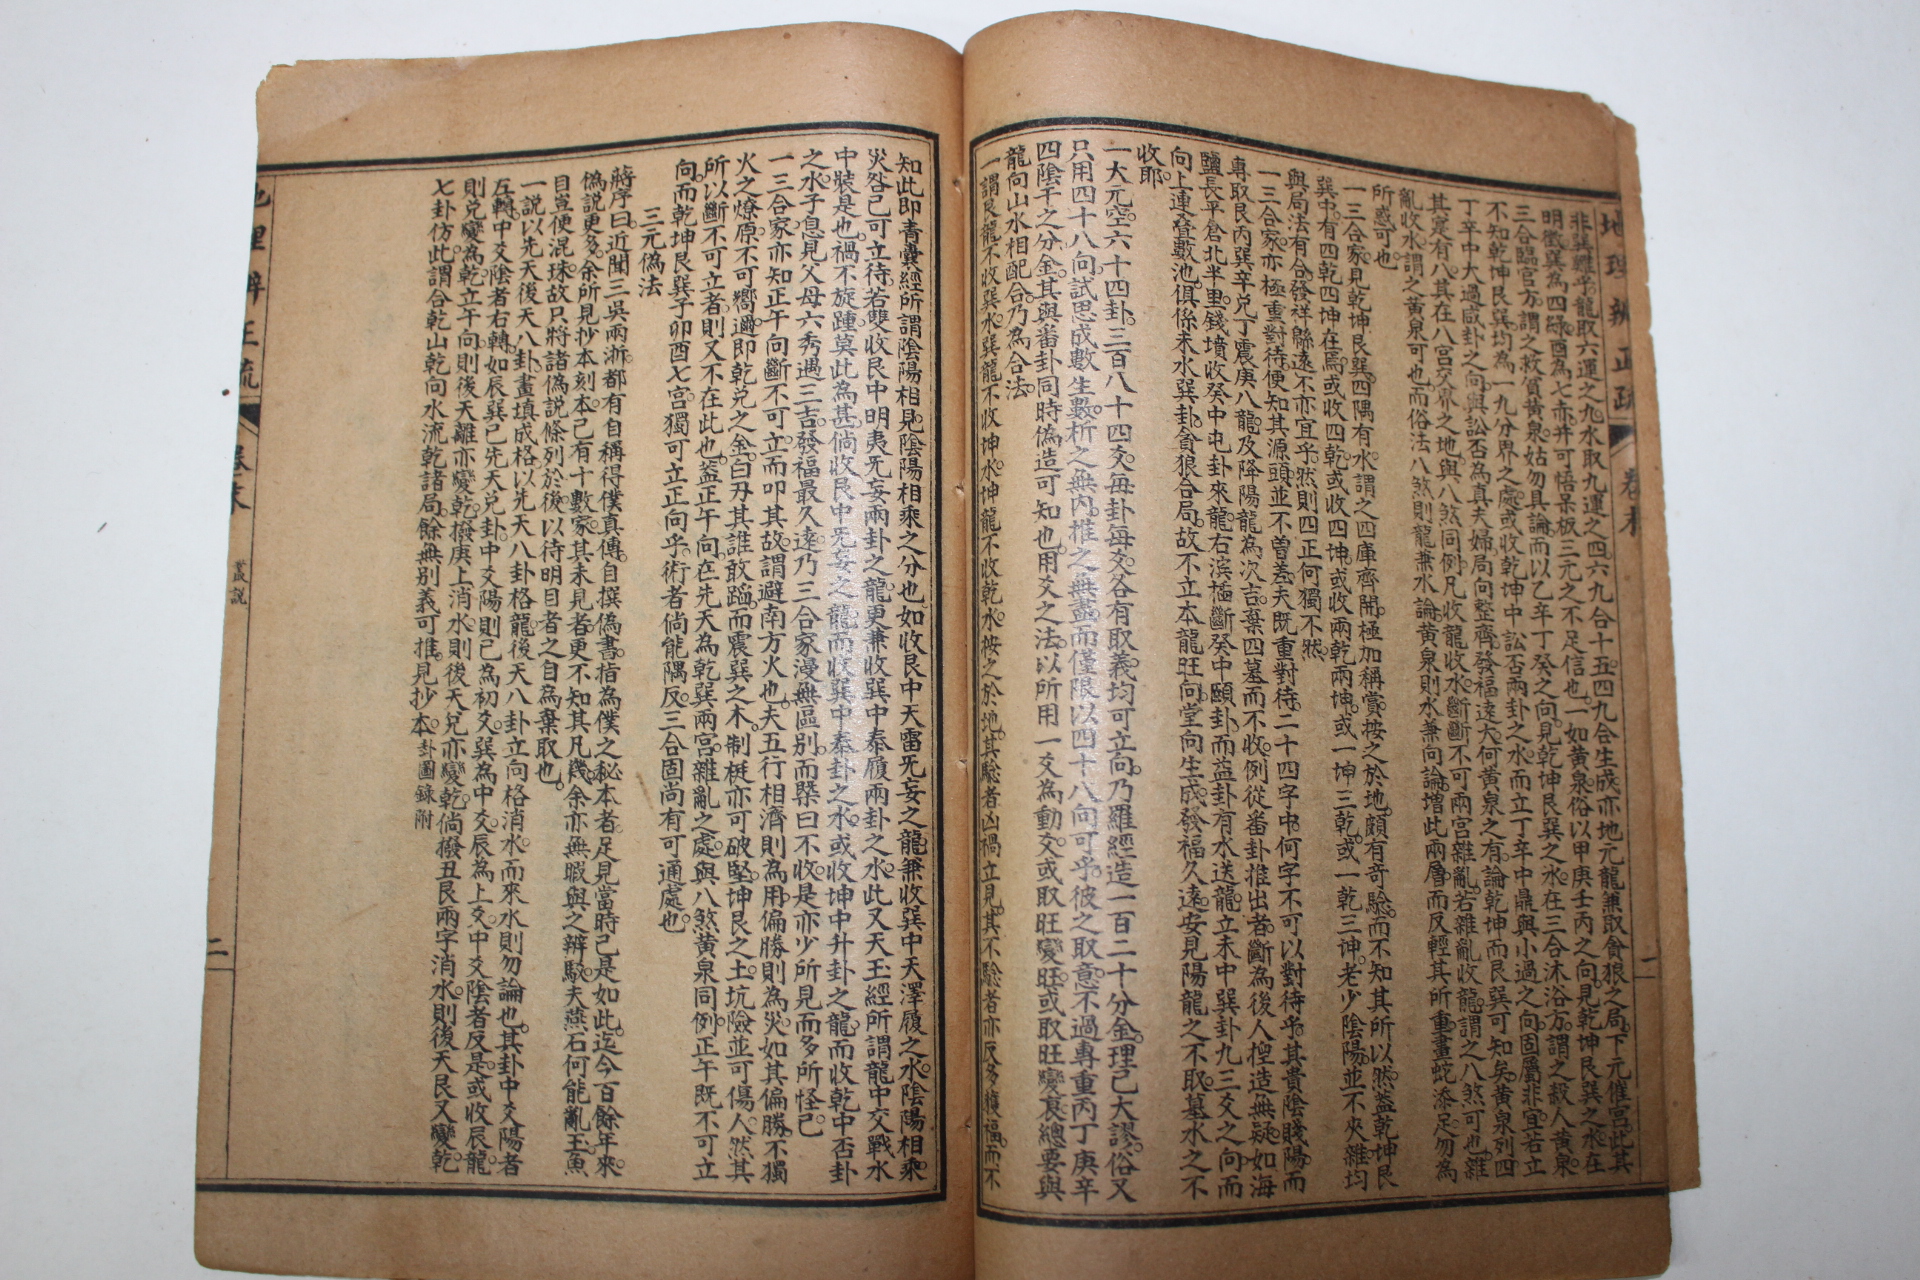 地理辨正疏
卷末
二
非巽離乎龍取六運之九水取九運之四六九合十五四九合生成亦地元龍兼取貪狼之局下元催宮此其
明徵巽為四綠酉為七赤并可悟呆板三元之不足信也一如黃泉俗以甲庚壬丙之向見乾坤艮巽之水在
三合臨官方謂之救貧黃泉姑勿具論而以乙辛丁癸之向見乾坤艮巽之水在三合沐浴方謂之殺人黃泉
不知乾坤艮巽均為一九分界之處或收乾坤中訟否兩卦之水而立丁辛中鼎與小過之向固屬非宜若立
丁辛中大過咸卦之向與訟否為真夫婦局向整齊發福遠大何黃泉之有論乾坤而艮巽可知矣黃泉列四
其寔有八其在八宮交界之地與八煞同例凡收龍收水斷斷不可兩宮雜亂若雜亂收龍謂之八煞可也雜
亂收水謂之黃泉可也而俗法八煞則龍兼水論黃泉則水兼向論增此兩層而反輕其所重畫蛇添足勿為
所惑可也
一三合家見乾坤艮巽四隅有水謂之四庫齊開極加稱賞按之於地頗有奇驗而不知其所以然蓋乾坤艮
巽中有四乾四坤在焉或收四乾或收四坤或收兩乾兩坤或一坤三乾或一乾三坤老少陰陽並不夾雜均
與局法有合發祥緜遠不亦宜乎然則四正何獨不然
一三合家亦極重對待便知其源頭並不曾差夫既重對待二十四字中何字不可以對待乎其貴陰賤陽而
專取艮丙巽辛兌丁震庚八龍及降陽龍為次吉棄四墓而不收例從番卦推出者斷為後人揑造無疑如海
鹽長平倉北半里錢墳收癸中屯卦來龍右濱插斷癸中頤卦而益卦有水送龍立未中巽卦九三爻之向而
向上連叠數池俱係未水巽卦貪狼合局故不立本龍旺向堂向生成發福久遠安見陽龍之不取墓水之不
收耶
一大元空六十四卦三百八十四爻每卦每爻各有取義均可立向乃羅經造一百二十分金理已大謬俗又
只用四十八向試思成數生數析之無內推之無盡而僅限以四十八向可乎彼之取意不過專重丙丁庚辛
四陰干之分金其與番卦同時偽造可知也用爻之法以所用一爻為動爻或取旺變旺或取旺變衰總要與
龍向山水相配合乃為合法
一謂艮龍不收巽水巽龍不收坤水坤龍不收乾水按之於地其驗者凶禍立見其不驗者亦反多獲福而不
知此即青囊經所謂陰陽相見陰陽相乘之分也如收艮中天雷旡妄之龍兼收巽中天澤履之水陰陽相乘
災咎己可立待若雙收艮中明夷旡妄兩卦之龍更兼收巽中泰履兩卦之水此又天玉經所謂龍中交戰水
中裝是也禍不旋踵莫此為甚倘收艮中旡妄之龍而收巽中泰卦之水或收坤中升卦之龍而收乾中否卦
之水子息見父母六秀遇三吉發福最久遠乃三合家漫無區別而槩曰不收是亦少所見而多所怪己
一三合家亦知正午向斷不可立而叩其故謂避南方火也夫五行相濟則為用偏勝則為災如其偏勝不獨
火之燎原不可嚮邇即乾兌之金白刃其誰敢蹈而震巽之木制梃亦可破堅坤艮之土坑險並可傷人然其
所以斷不可立者則又不在此也蓋正午向在先天為乾巽兩宮雜亂之處與八煞黃泉同例正午既不可立
向而乾坤艮巽子卯酉七宮獨可立正向乎術者倘能隅反三合固尚有可通處也
三元偽法
蔣序曰近聞三吳兩浙都有自稱得僕真傳自撰偽書指為僕之秘本者足見當時己是如此迄今百餘年來
偽說更多余所見抄本刻本己有十數家其未見者更不知其凡幾余亦無暇與之辨駁夫燕石何能亂玉魚
目豈便混珠故只將諸偽說條列於後以待明目者之自為棄取也
一說以先天後天八卦畫填成格以先天八卦格龍後天八卦立向格消水而來水則勿論也其卦中爻陽者
左轉中爻陰者右轉如辰巽己先天兌卦中爻陽則己為初爻巽為中爻辰為上爻中爻陰者反是或收辰龍
則兌變為乾立午向則後天離亦變乾撥庚上消水則後天兌亦變乾倘撥丑艮兩字消水則後天艮又變乾
七卦仿此謂合乾山乾向水流乾諸局餘無别義可推見抄本卦圖錄附
地理辨正疏
卷末
叢說
二